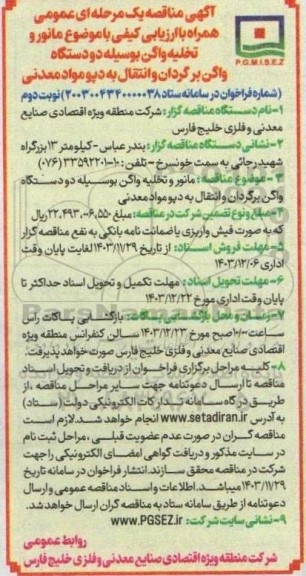 آگهی مناقصه یک مرحله ای عمومی
همراه با ارزیابی کیفی با موضوع مانور و
تخلیه واگن بوسیله دو دستگاه
واگن برگردان و انتقال به دپو مواد معدنی
P.G.M.I.S.E.Z
(شماره فراخوان در سامانه ستاد ۲۰۰۳۰۰۴۳۴۰۰۰۰۰۳۸) نوبت دوم
۱-نام دستگاه مناقصه گزار: شرکت منطقه ویژه اقتصادی صنایع
معدنی و فلزی خلیج فارس
۲-نشانی دستگاه مناقصه گزار: بندر عباس - کیلومتر ۱۳ بزرگراه
شهید رجائی به سمت خونسرخ - تلفن: ۱۰-۳۳۵۹۲۲۰۱ (۰۷۶)
۳-موضوع مناقصه: مانور و تخلیه واگن بوسیله دو دستگاه
واگن برگردان و انتقال به دپو مواد معدنی
۴-مبلغ و نوع تضمین شرکت در مناقصه: مبلغ ۲۲،۴۹۳،۰۰۶،۵۵۰ ریال
که به صورت فیش واریزی یا ضمانت نامه بانکی به نفع مناقصه گزار
۵-مهلت فروش اسناد: از تاریخ ۱۴۰۳/۱۱/۲۹ لغایت پایان وقت
اداری ۱۴۰۳/۱۲/۰۶
۶-مهلت تحویل اسناد: مهلت تکمیل و تحویل اسناد حداکثر تا
پایان وقت اداری مورخ ۱۴۰۳/۱۲/۲۲
۷-زمان و محل بازگشایی پاکات: بازگشایی پاکات راس
ساعت ۱۰/۰۰ صبح مورخ ۱۴۰۳/۱۲/۲۳ سالن کنفرانس منطقه ویژه
اقتصادی صنایع معدنی و فلزی خلیج فارس صورت خواهد پذیرفت.
۸-کلیه مراحل برگزاری فراخوان از دریافت و تحویل اسناد
مناقصه تا ارسال دعوتنامه جهت سایر مراحل مناقصه، از
طریق درگاه سامانه تدارکات الکترونیکی دولت (ستاد)
به آدرس www.setadiran.ir انجام خواهد شد. لازم است
مناقصه گران در صورت عدم عضویت قبلی، مراحل ثبت نام
در سایت مذکور و دریافت گواهی امضای الکترونیکی را جهت
شرکت در مناقصه محقق سازند. انتشار فراخوان در سامانه تاریخ
۱۴۰۳/۱۱/۲۹ میباشد. اطلاعات و اسناد مناقصه عمومی و ارسال
دعوتنامه از طریق سامانه ستاد به مناقصه گران ارسال خواهد شد.
۹-نشانی سایت شرکت: www.PGSEZ.ir
روابط عمومی
شرکت منطقه ویژه اقتصادی صنایع معدنی و فلزی خلیج فارس